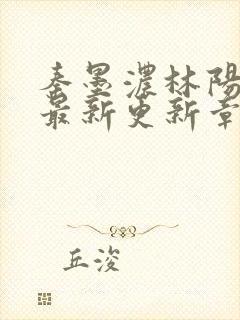 秦墨濃林陽
最新更新章
丘浚